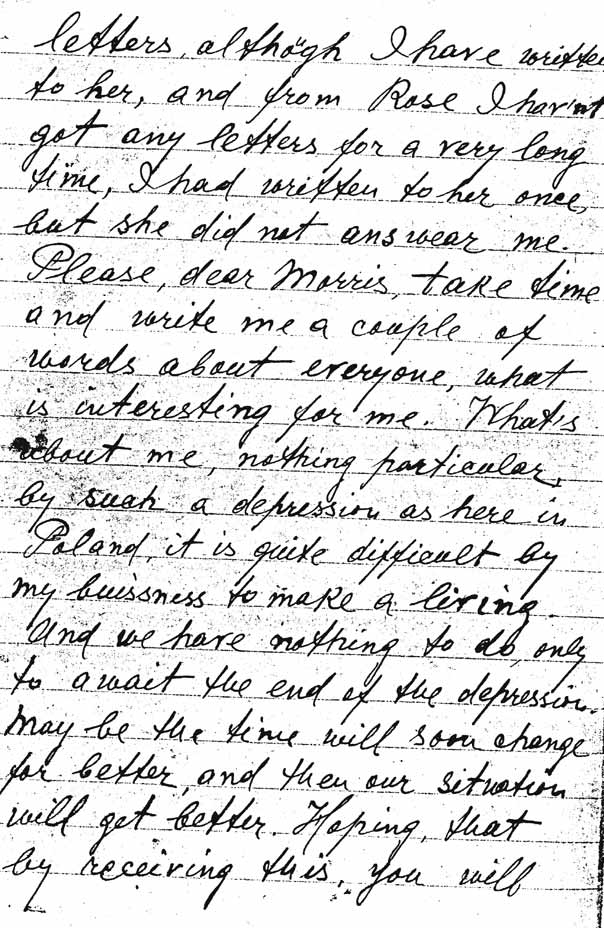 letters, although I have written
to her, and from Rose I hav'nt
got any letters for a very long
time, I had written to her once,
but she did not answear me.
Please, dear Morris, take time
and write me a couple of
words about everyone, what
is interesting for me. What's
about me, nothing particular,
by such a depression as here in
Poland, it is quite difficult by
my buissness to make a living.
And we have nothing to do, only
to await the end of the depression.
May be the time will soon change
for better, and then our situation
will get better. Hoping, that
by receiving this, you will